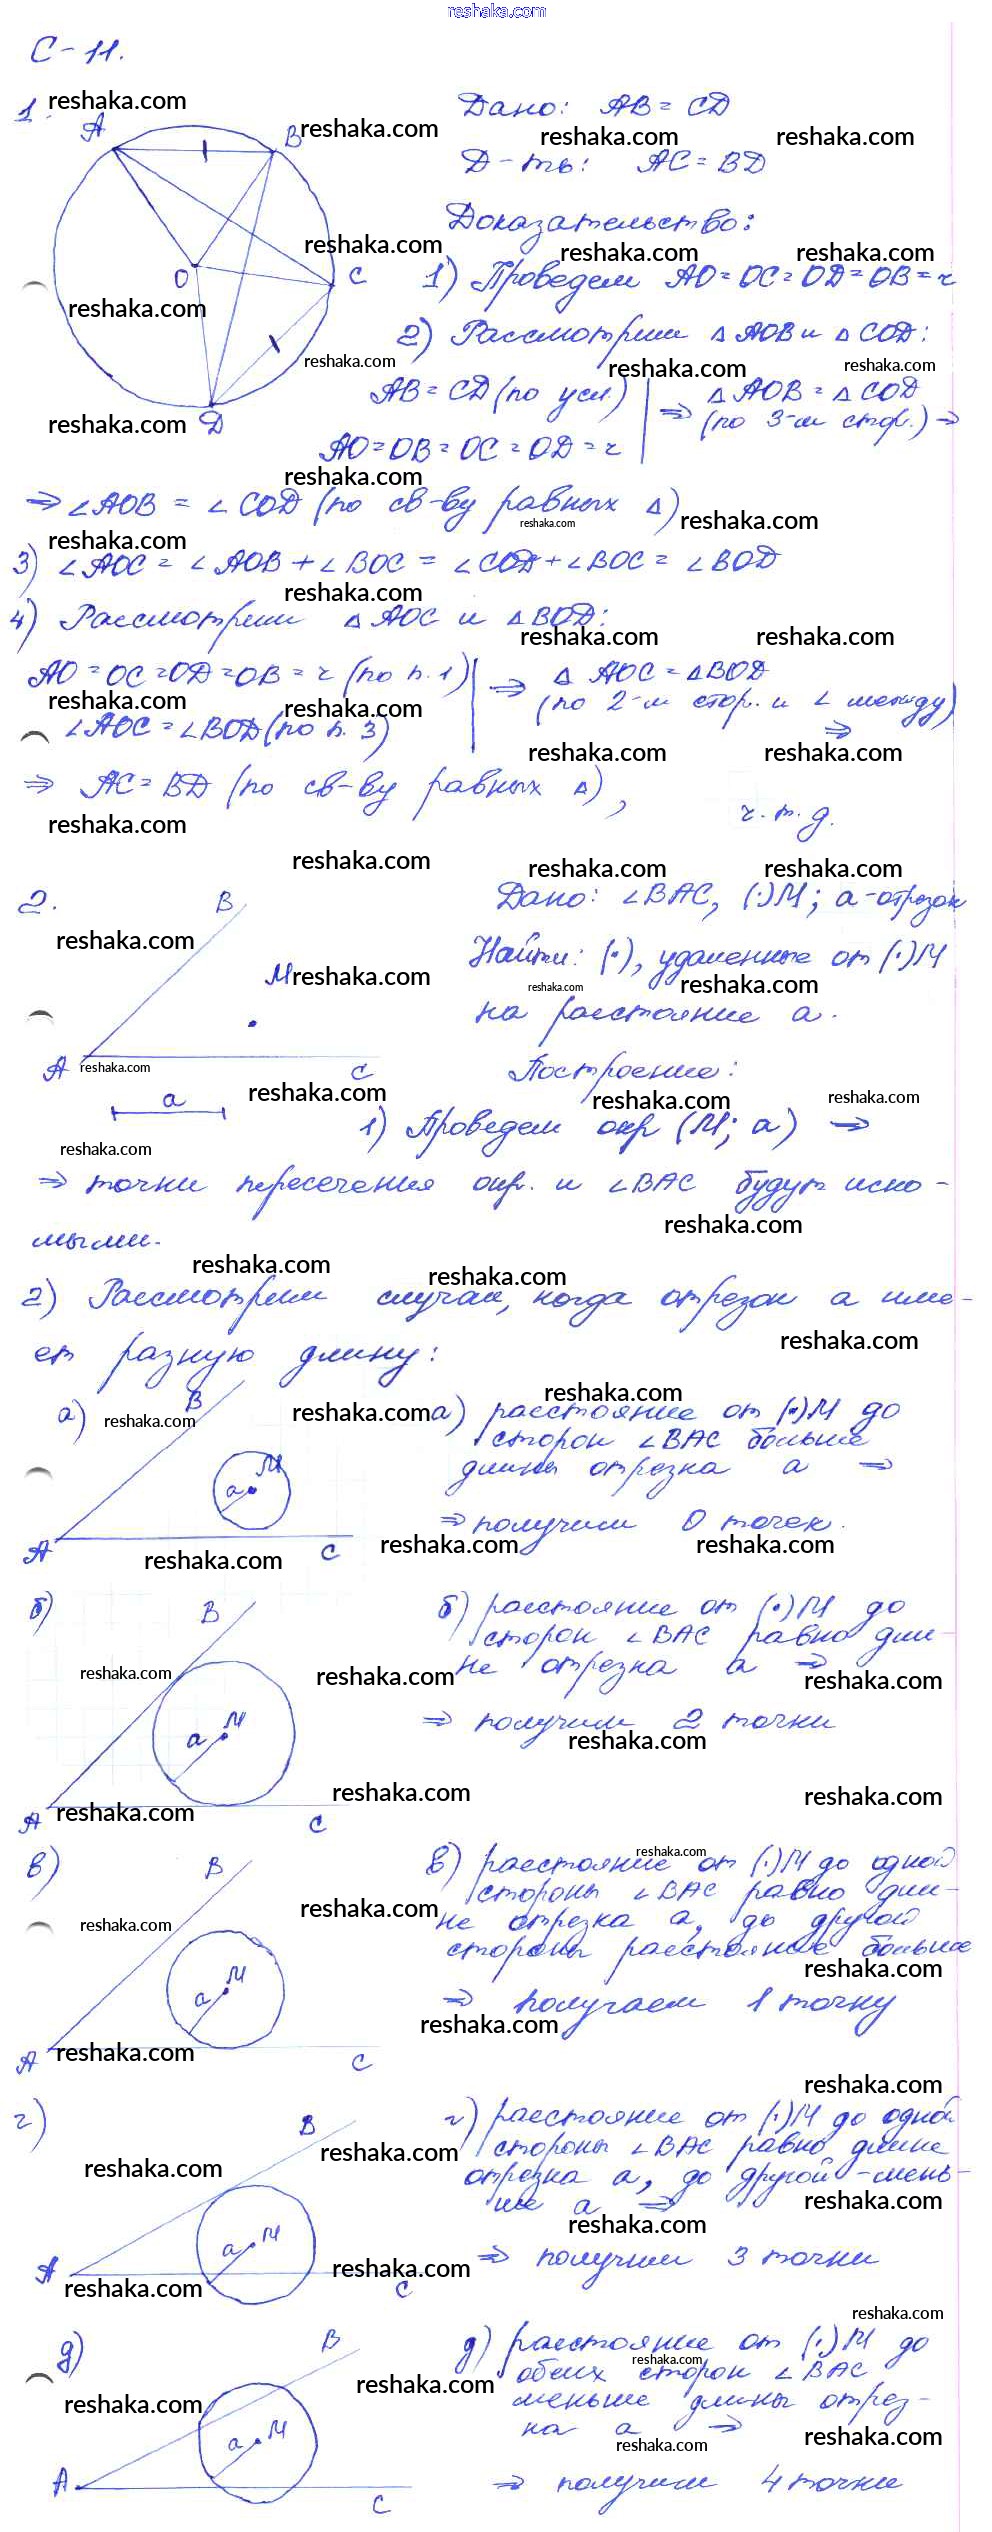 reshaka.com
С-11.
1.
Дано: AB = CD
Д-ть: AC = BD
Доказательство:
1) Проведем AO = OC = OD = OB = r
2) Рассмотрим △ AOB и △ COD:
AB = CD (по усл.)
AO = OB = OC = OD = r
⇒ △ AOB = △ COD
(по 3-м стор.) ⇒
⇒ ∠AOB = ∠COD (по св-ву равных △)
3) ∠AOC = ∠AOB + ∠BOC = ∠COD + ∠BOC = ∠BOD
4) Рассмотрим △ AOC и △ BOD:
AO = OC = OD = OB = r (по п. 1)
∠AOC = ∠BOD (по п. 3)
⇒ △ AOC = △ BOD
(по 2-м стор. и ∠ между)
⇒
⇒ AC = BD (по св-ву равных △),
ч.т.д.
A
B
C
O
D
2.
Дано: ∠BAC, (·)M; a-отрезок
Найти: (·), удаленные от (·)M
на расстояние a.
Построение:
B
M
A
C
a
1) Проведем окр (M; a) ⇒
⇒ точки пересечения окр. и ∠BAC будут иско-
мыми.
2) Рассмотрим случаи, когда отрезок a име-
ет разную длину:
а)
B
M
a
A
C
а) расстояние от (·)M до
сторон ∠BAC больше
длины отрезка a ⇒
⇒ получим 0 точек.
б)
B
M
a
A
C
б) расстояние от (·)M до
сторон ∠BAC равно дли-
не отрезка a ⇒
⇒ получим 2 точки
в)
B
M
a
A
C
в) расстояние от (·)M до одной
стороны ∠BAC равно дли-
не отрезка a, до другой
стороны расстояние больше
⇒ получаем 1 точку
г)
B
M
a
A
C
г) расстояние от (·)M до одной
стороны ∠BAC равно длине
отрезка a, до другой - мень-
ше a ⇒
⇒ получим 3 точки
д)
B
M
a
A
C
д) расстояние от (·)M до
обеих сторон ∠BAC
меньше длины отрез-
ка a ⇒
⇒ получим 4 точки